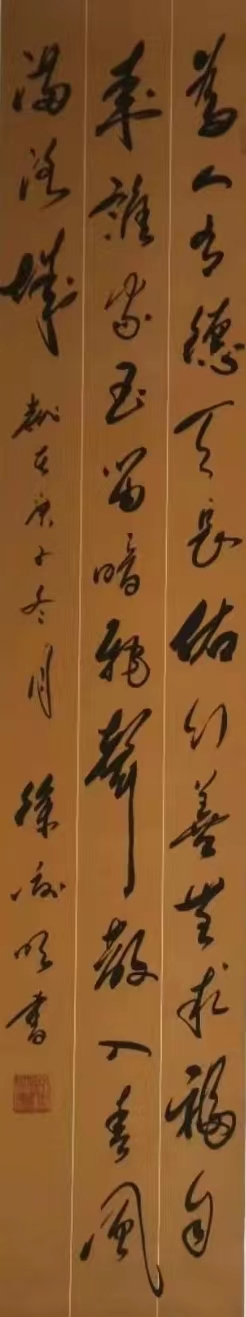 為人有德天長佑行善無求福自
來誰家玉笛暗飛聲散入春風
滿洛城 歲在庚子冬月 徐明書